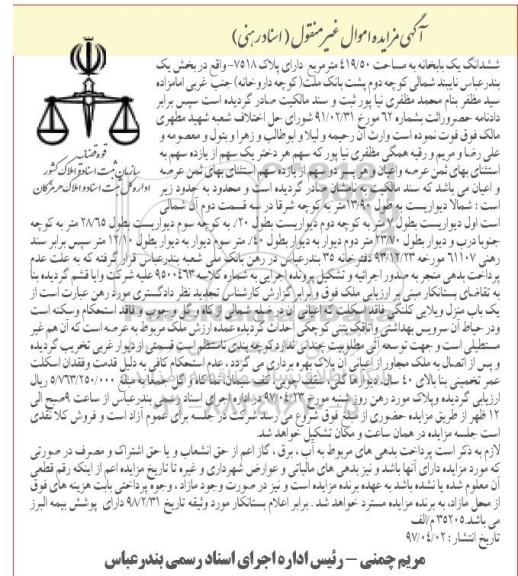 آگهی مزایده اموال غیر منقول (اسناد رهنی)
قوه قضائیه
سازمان ثبت اسناد و املاک کشور
اداره کل ثبت اسناد و املاک هرمزگان
ششدانگ یک بابخانه به مساحت ۴۱۹/۵۰ مترمربع دارای پلاک ۷۵۱۸- واقع در بخش یک
بندرعباس نایبند شمالی کوچه دوم پشت بانک ملت(کوچه داروخانه) جنب غربی امامزاده
سید مظفر بنام محمد مظفری نیا پور ثبت و سند مالکیت صادر گردیده است سپس برابر
دادنامه حصروراثت بشماره ۶۲ مورخ ۹۱/۰۲/۳۱ شورای حل اختلاف شعبه شهید مطهری
مالک فوق فوت نموده است وراث آن رحیمه و لیلا و ابوطالب و زهرا و بتول و معصومه و
علی رضا و مریم و رقیه همگی مظفری نیا پور که سهم هر دختر یک سهم از یازده سهم به
استثنای بهای ثمن عرصه واعیان و هر پسر دو سهم از یازده سهم استثنای بهای ثمن عرصه
و اعیان می باشد که سند مالکیت به نامشان صادر گردیده است و محدود به حدود زیر
است : شمالا دیواریست به طول ۱۳/۹۰ متر به کوچه شرقا در سه قسمت دوم آن شمالی
است اول دیواریست بطول ۲ متر به کوچه دوم دیواریست بطول ۲۰/. به کوچه سوم دیواریست بطول ۲۸/۶۵ متر به کوچه
جنوبا درب و دیوار بطول ۲۳/۷۰ متر دوم دیوار به دیوار بطول ۴۰/. متر سوم دیوار به دیوار بطول ۱۲/۱۰ متر سپس برابر سند
رهنی ۶۱۱۰۷ مورخه ۹۳/۱۲/۲۳ دفترخانه ۳۵ بندرعباس در رهن بانک ملی شعبه بندرعباس قرار گرفته که به علت عدم
پرداخت بدهی منجر به صدور اجرائیه و تشکیل پرونده اجرایی به شماره کلاسه ۹۵۰۰۴۶۳ علیه شرکت وایا قشم گردیده بنا
به تقاضای بستانکار مبنی بر ارزیابی ملک فوق و برابر گزارش کارشناس تجدید نظر دادگستری مورد رهن عبارت است از
یک باب منزل ویلایی کلنگی فاقد اسکلت که اعیانی آن در ضلع شمالی ازکاه و گل و چوب و فاقد استحکام وسکنه است
ودر حیاط آن سرویس بهداشتی و اتاقک پتنی کوچکی احداث گردیده عمده ارزش ملک مربوط به عرصه است که آن هم غیر
مستطیلی است و جهت توسعه آتی مطلوبیت چندانی ندارد کوچه بندی نامنظم است قسمتی از دیوار غربی تخریب گردیده
و پس از اتصال به ملک مجاور از اعیانی آن پلاک بهره برداری می گردد، عدم استحکام کافی به دلیل قدمت و فقدان اسکلت
عمر تخمینی بنا بالای ۴۰ سال، دیوارها گلی، سقف چوبی کف سیمان نما کاه و گل جمعا به مبلغ ۵/۷۶۳/۲۵۰/۰۰۰ ریال
ارزیابی گردیده وپلاک مورد رهن روز شنبه مورخ ۹۷/۰۴/۲۳ در اداره اجرای اسناد رسمی بندرعباس از ساعت ۹صبح الی
۱۲ ظهر از طریق مزایده حضوری از مبلغ فوق شروع می رسد شرکت در جلسه برای عموم آزاد است و فروش کلا نقدی
است جلسه مزایده در همان ساعت و مکان تشکیل خواهد شد.
لازم به ذکر است پرداخت بدهی های مربوط به آب ، برق ، گاز اعم از حق انشعاب و یا حق اشتراک و مصرف در صورتی
که مورد مزایده دارای آنها باشد و نیز بدهی های مالیاتی و عوارض شهرداری و غیره تا تاریخ مزایده اعم از اینکه رقم قطعی
آن معلوم شده یا نشده باشد به عهده برنده مزایده است و نیز در صورت وجود مازاد ، وجوه پرداختی بابت هزینه های فوق
از محل مازاد، به برنده مزایده مسترد خواهد شد . برابر اعلام بستانکار مورد وثیقه تاریخ ۹۸/۲/۳۱ دارای پوشش بیمه البرز
می باشد.۳۵۲۰۵ م/الف
تاریخ انتشار : ۹۷/۰۴/۰۲
مریم چمنی – رئیس اداره اجرای اسناد رسمی بندرعباس